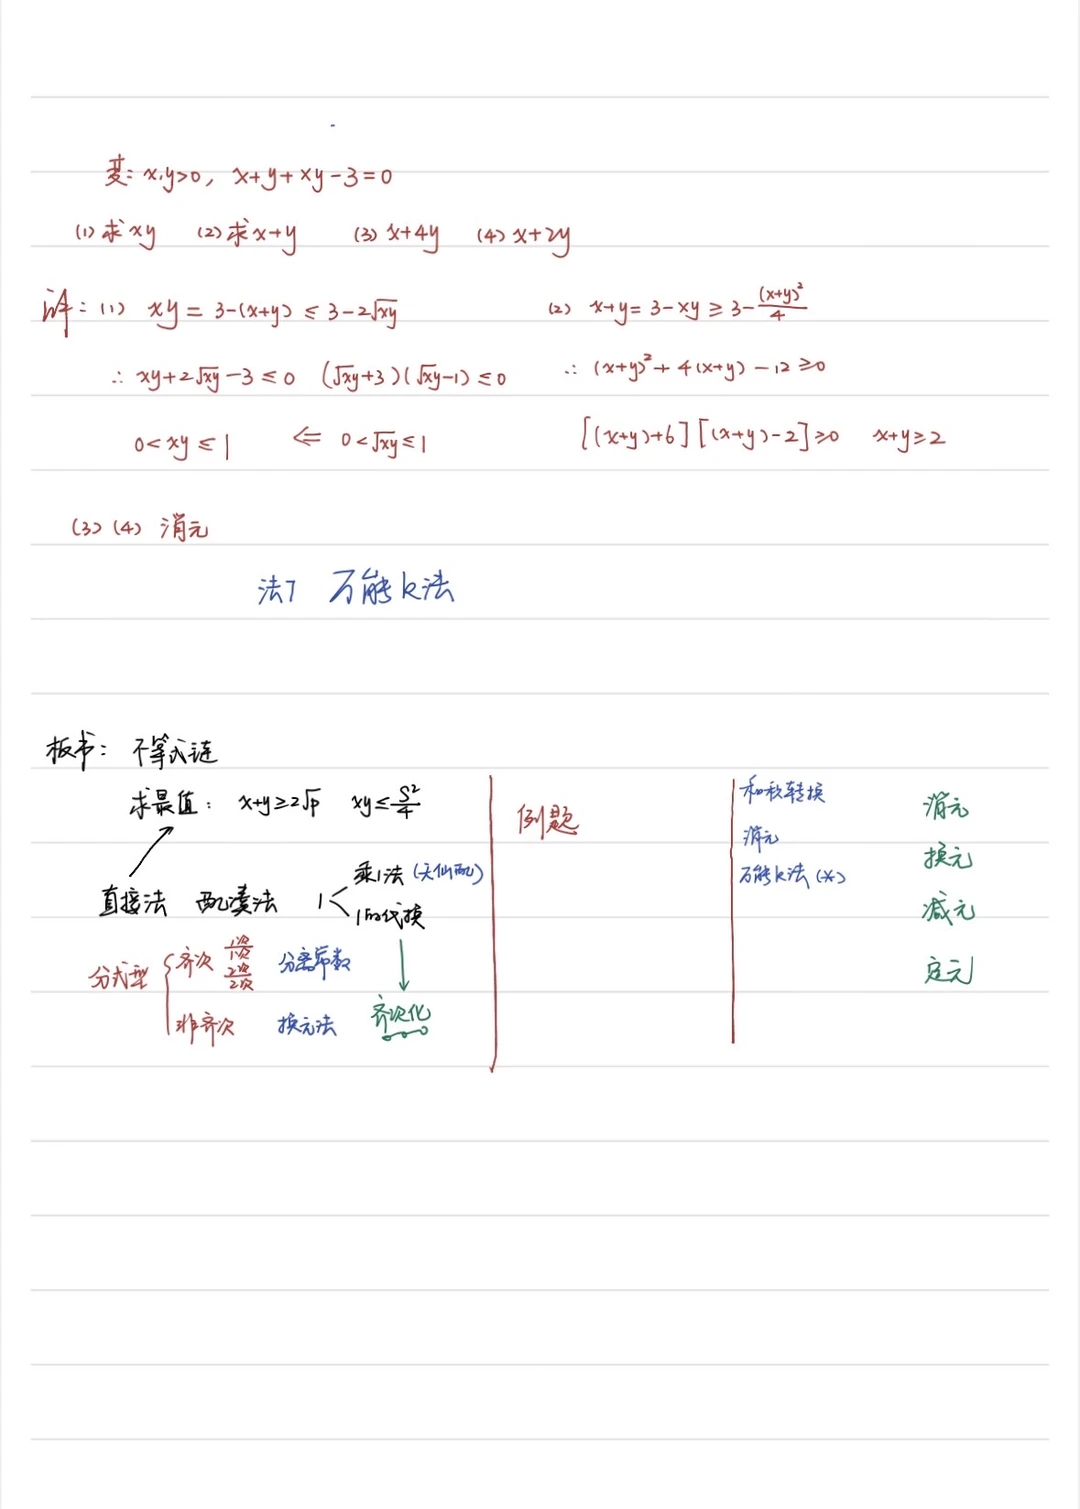 变: x,y>0, x+y+xy-3=0
(1) 求xy (2) 求x+y (3) x+4y (4) x+2y
详: (1) xy = 3-(x+y) ≤ 3-2√xy (2) x+y = 3-xy ≥ 3-(x+y)²/4
∴ xy+2√xy-3 ≤ 0 (√xy+3)(√xy-1) ≤ 0 ∴ (x+y)²+4(x+y)-12 ≥ 0
0<xy≤1 ⇐ 0<√xy≤1 [(x+y)+6][(x+y)-2]≥0 x+y≥2
(3) (4) 消元
法7 万能k法
板书: 不等式链
求最值: x+y≥2√P xy≤S²/4
直接法 配凑法 1< 乘1法 (天仙配)
1的代换
分式型 { 齐次 1次/1次 2次/2次 分离常数
非齐次 换元法 齐次化
例题
和积转换
消元
万能k法(※)
消元
换元
减元
定元